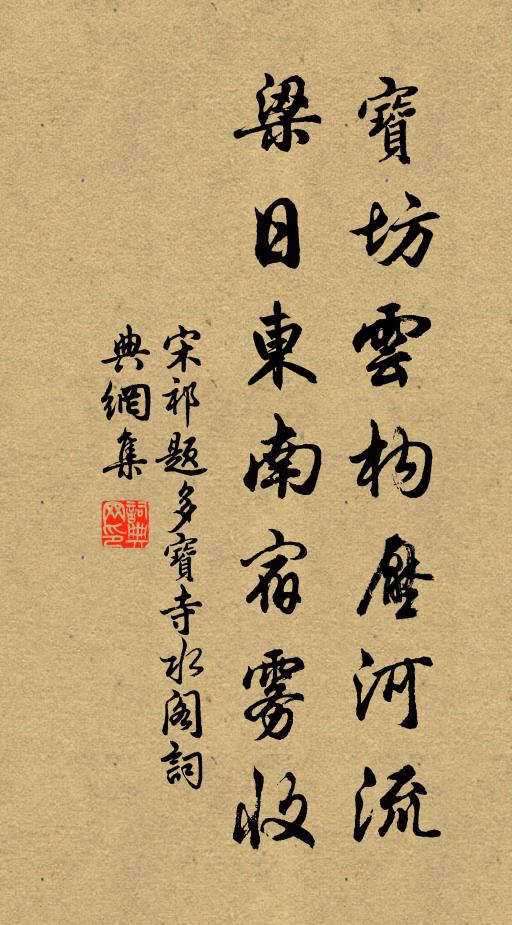 寶坊雲构壓河流
梁日東南宿雾收
宋祁題多寶寺水閣詞
典網集
詞典
网印